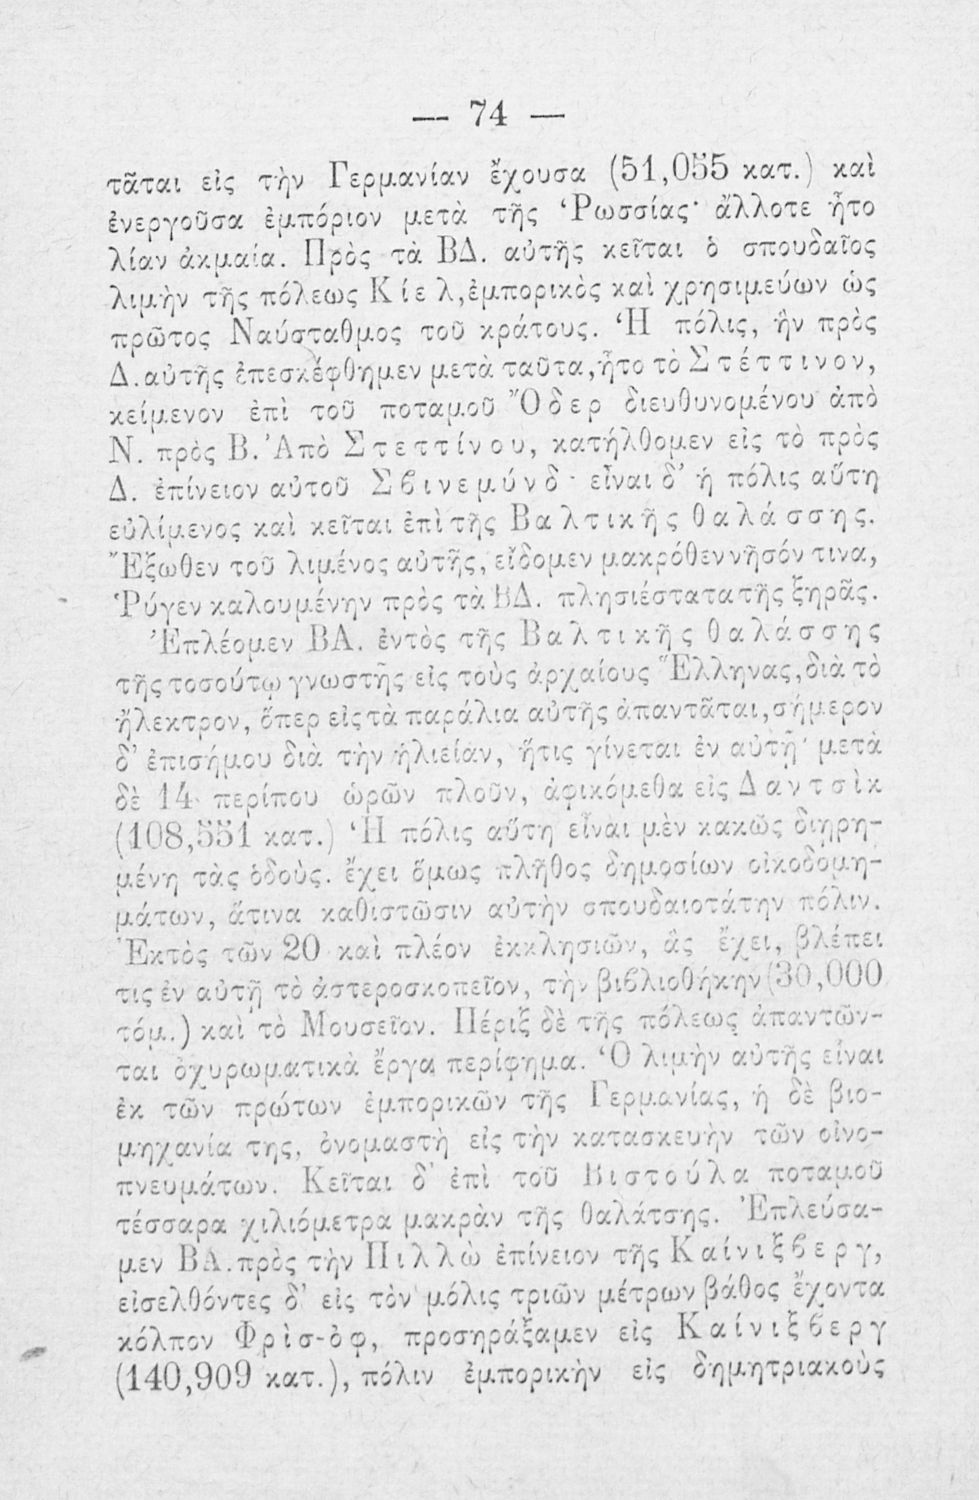 — 74 —
τᾶται εἰς τὴν Γερμανίαν ἔχουσα (51,055 κατ.) καὶ
ἐνεργοῦσα ἐμπόριον μετὰ τῆς Ῥωσσίας· ἄλλοτε ἦτο
λίαν ἀκμαία. Πρὸς τὰ ΒΔ. αὐτῆς κεῖται ὁ σπουδαῖος
λιμὴν τῆς πόλεως Κίελ, ἐμπορικὸς καὶ χρησιμεύων ὡς
πρῶτος Ναύσταθμος τοῦ κράτους. Ἡ πόλις, ἣν πρὸς
Δ. αὐτῆς ἐπεσκέφθημεν μετὰ ταῦτα, ἦτο τὸ Στέττινον,
κείμενον ἐπὶ τοῦ ποταμοῦ Ὄδερ διευθυνομένου ἀπὸ
Ν. πρὸς Β. Ἀπὸ Στεττίνου, κατήλθομεν εἰς τὸ πρὸς
Δ. ἐπίνειον αὐτοῦ Σβινεμύνδ· εἶναι δ' ἡ πόλις αὕτη
εὐλίμενος καὶ κεῖται ἐπὶ τῆς Βαλτικῆς θαλάσσης.
Ἔξωθεν τοῦ λιμένος αὐτῆς, εἴδομεν μακρόθεν νῆσόν τινα,
Ῥύγεν καλουμένην πρὸς τὰ ΒΔ. πλησιέστατα τῆς ξηρᾶς.
Ἐπλέομεν ΒΑ. ἐντὸς τῆς Βαλτικῆς θαλάσσης
τῆς τοσούτῳ γνωστῆς εἰς τοὺς ἀρχαίους Ἕλληνας, διὰ τὸ
ἤλεκτρον, ὅπερ εἰς τὰ παράλια αὐτῆς ἀπαντᾶται, σήμερον
δ' ἐπισήμου διὰ τὴν ἁλιείαν, ἥτις γίνεται ἐν αὐτῇ· μετὰ
δὲ 14 περίπου ὡρῶν πλοῦν, ἀφικόμεθα εἰς Δαντσὶκ
(108,551 κατ.) Ἡ πόλις αὕτη εἶναι μὲν κακῶς διῃρη-
μένη τὰς ὁδοὺς. ἔχει ὅμως πλῆθος δημοσίων οἰκοδομη-
μάτων, ἅτινα καθιστῶσιν αὐτὴν σπουδαιοτάτην πόλιν.
Ἐκτὸς τῶν 20 καὶ πλέον ἐκκλησιῶν, ἃς ἔχει, βλέπει
τις ἐν αὐτῇ τὸ ἀστεροσκοπεῖον, τὴν βιβλιοθήκην (30,000
τόμ.) καὶ τὸ Μουσεῖον. Πέριξ δὲ τῆς πόλεως ἀπαντῶν-
ται ὀχυρωματικὰ ἔργα περίφημα. Ὁ λιμὴν αὐτῆς εἶναι
ἐκ τῶν πρώτων ἐμπορικῶν τῆς Γερμανίας, ἡ δὲ βιο-
μηχανία της, ὀνομαστὴ εἰς τὴν κατασκευὴν τῶν οἰνο-
πνευμάτων. Κεῖται δ' ἐπὶ τοῦ Βιστούλα ποταμοῦ
τέσσαρα χιλιόμετρα μακρὰν τῆς θαλάτσης. Ἐπλεύσα-
μεν ΒΑ. πρὸς τὴν Πιλλὼ ἐπίνειον τῆς Καίνιξβεργ,
εἰσελθόντες δ' εἰς τὸν μόλις τριῶν μέτρων βάθος ἔχοντα
κόλπον Φρὶσ-ὀφ, προσηράξαμεν εἰς Καίνιξβεργ
(140,909 κατ.), πόλιν ἐμπορικὴν εἰς δημητριακοὺς